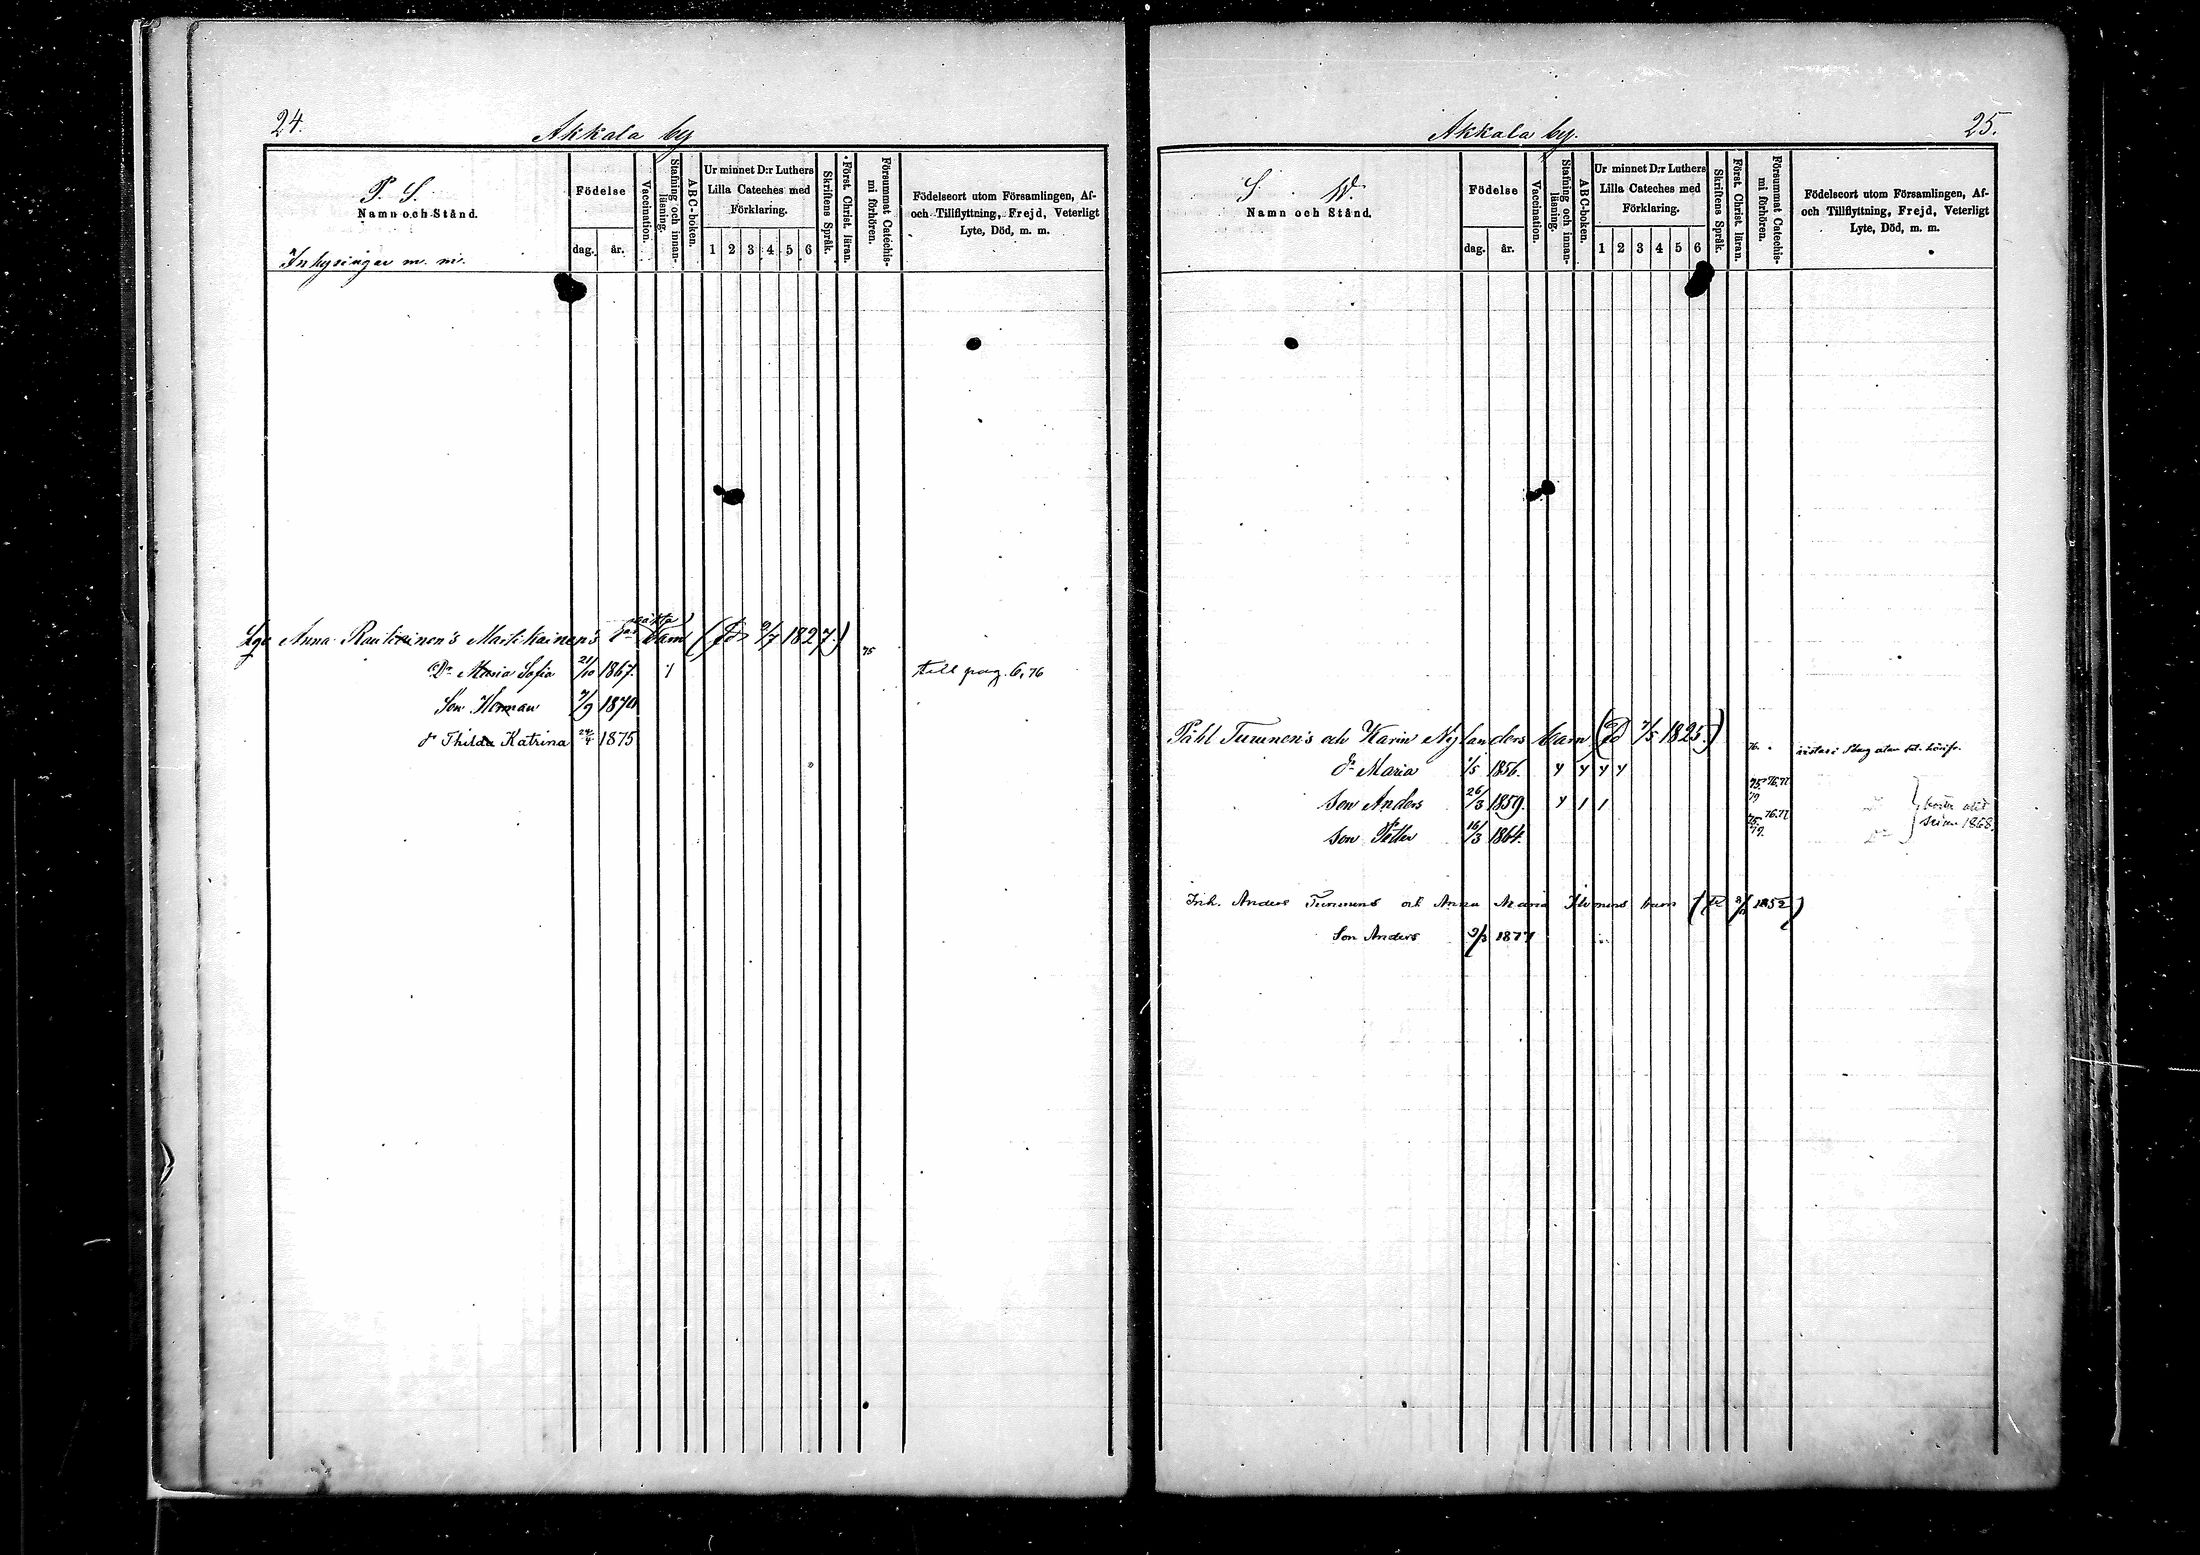 24.
Akkala by
P. S.
Namn och Stånd.
Inhysingar m. m.
Födelse
dag.
år.
Vaccination.
Stafning och innan-
läsning.
ABC-boken.
Ur minnet D:r Luthers
Lilla Cateches med
Förklaring.
1 2 3 4 5 6
Skriftens Språk.
Först. Christ. läran.
Försummat Catechis-
mi förhören.
Födelseort utom Församlingen, Af-
och Tillflyttning, Frejd, Veterligt
Lyte, Död, m. m.
oäkta
Anna Rautiainen's Martikainen's barn (fd 2/7 1827.)
75
Dr Maria Sofia 21/10 1867. till pag. 6, 76
Son Herman 7/9 1870
dr Thilda Katrina 24/4 1875
Akkala by.
25.
S. W.
Namn och Stånd.
Födelse
dag.
år.
Vaccination.
Stafning och innan-
läsning.
ABC-boken.
Ur minnet D:r Luthers
Lilla Cateches med
Förklaring.
1 2 3 4 5 6
Skriftens Språk.
Först. Christ. läran.
Försummat Catechis-
mi förhören.
Födelseort utom Församlingen, Af-
och Tillflyttning, Frejd, Veterligt
Lyte, Död, m. m.
Påhl Turunen's och Karin Nylanders barn (fd 7/5 1825.)
76.
dr Maria 1/5 1856.
75. 76. 77
79
Son Anders 26/3 1859.
75. 76. 77
79.
Son Petter 16/3 1864.
sedan 1868.
Inh. Anders Turunens och Anna Maria barn (fd 1852)
Son Anders 9/3 1877